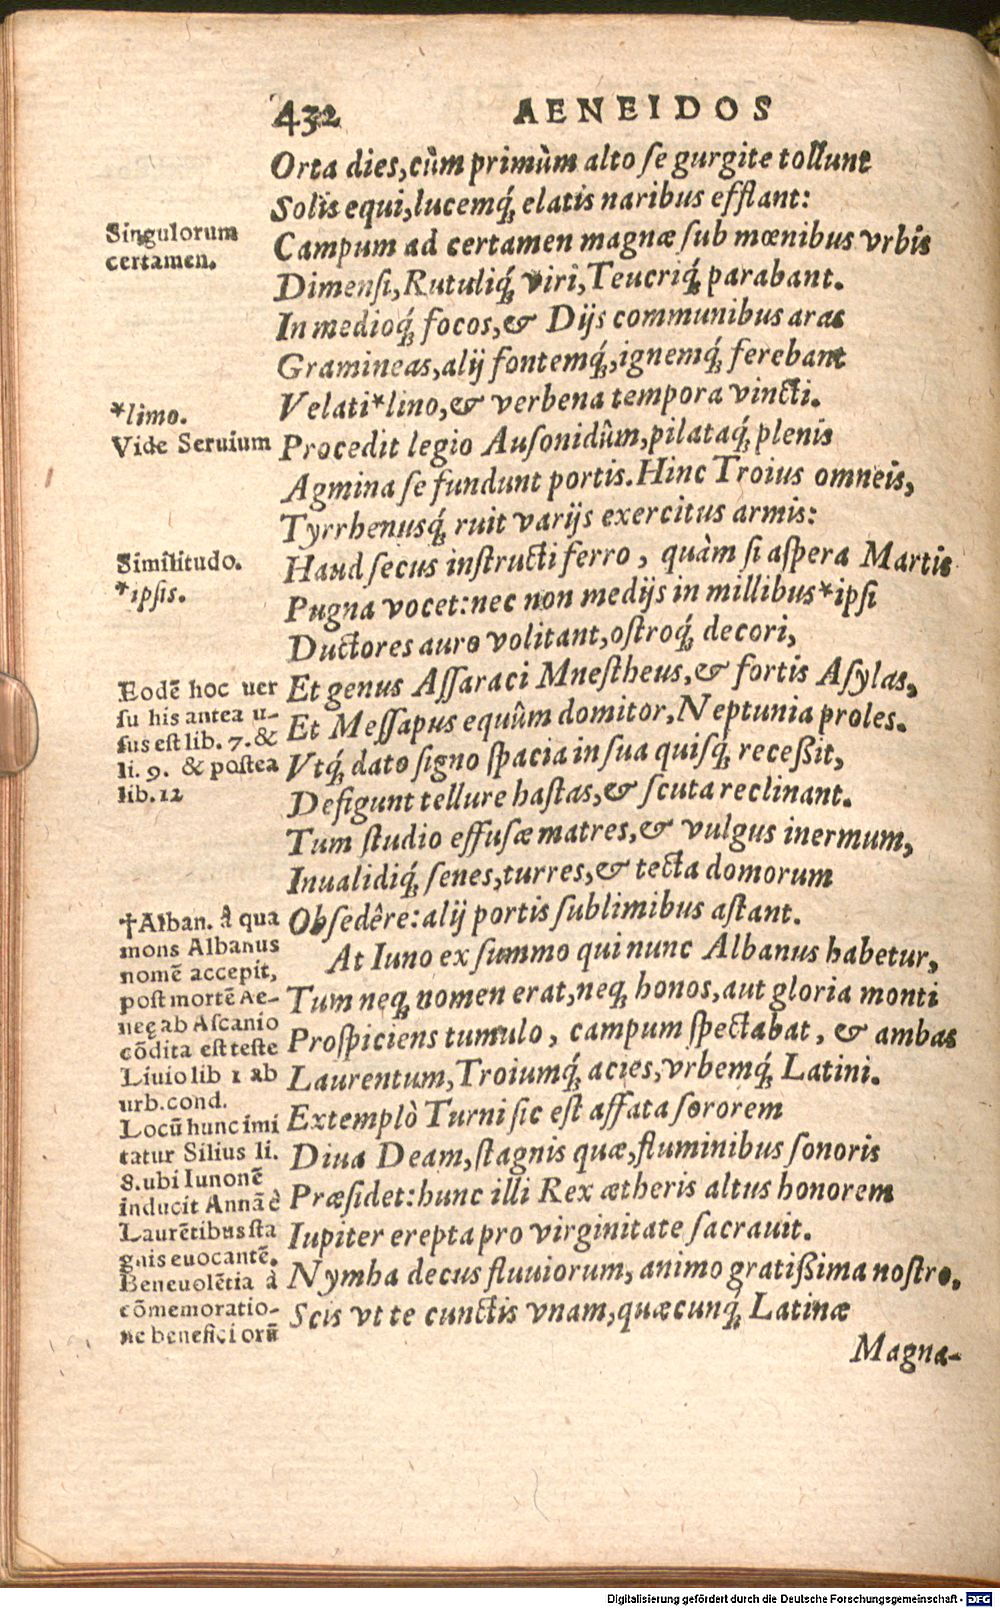 432 AENEIDOS
Orta dies, cùm primùm alto se gurgite tollunt
Solis equi, lucemq́; elatis naribus efflant:
Singulorum
certamen.
Campum ad certamen magnæ sub mœnibus vrbis
Dimensi, Rutuliq́; viri, Teucriq́; parabant.
In medioq́; focos, & Dijs communibus aras
Gramineas, alij fontemq́;, ignemq́; ferebant
*limo.
Vide Seruium
Velati *lino, & verbena tempora vincti.
Procedit legio Ausonidûm, pilataq́; plenis
Agmina se fundunt portis. Hinc Troius omneis,
Tyrrhenusq́; ruit varijs exercitus armis:
Similitudo.
*ipsis.
Haud secus instructi ferro, quàm si aspera Martis
Pugna vocet: nec non medijs in millibus *ipsi
Ductores auro volitant, ostroq́; decori,
Eodē hoc uer
su his antea u-
sus est lib. 7. &
li. 9. & postea
lib. 12
Et genus Assaraci Mnestheus, & fortis Asylas,
Et Messapus equûm domitor, Neptunia proles.
Vtq́; dato signo spacia in sua quisq́; receßit,
Defigunt tellure hastas, & scuta reclinant.
Tum studio effusæ matres, & vulgus inermum,
Inualidiq́; senes, turres, & tecta domorum
Obsedêre: alij portis sublimibus astant.
†Alban. â qua
mons Albanus
nomē accepit,
post mortē Ae-
neę ab Ascanio
cōdita est teste
Liuio lib 1 ab
urb. cond.
Locū hunc imi
tatur Silius li.
8. ubi Iunonē
inducit Annā è
Laurētibus sta
gnis euocantē.
Beneuolētia à
cōmemoratio-
ne beneficiorū
At Iuno ex summo qui nunc Albanus habetur,
Tum neq; nomen erat, neq; honos, aut gloria monti
Prospiciens tumulo, campum spectabat, & ambas
Laurentum, Troiumq́; acies, vrbemq́; Latini.
Extemplò Turni sic est affata sororem
Diua Deam, stagnis quæ, fluminibus sonoris
Præsidet: hunc illi Rex ætheris altus honorem
Iupiter erepta pro virginitate sacrauit.
Nympha decus fluuiorum, animo gratißima nostro,
Scis vt te cunctis vnam, quæcunq́; Latinæ
Magna-
Digitalisierung gefördert durch die Deutsche Forschungsgemeinschaft - DFG